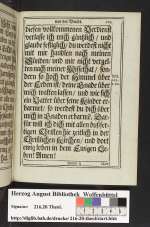 von der Busse.
diesen vollkommenen Verdienst
verlasse ich mich gäntzlich / und
glaube festiglich / du werdest nicht
mit mir handlen nach meinen
Sünden / und mir nicht vergel-
ten nach meiner Missethat / son-
dern so hoch der Himmel über
der Erden ist / deine Gnade über
mich walten lassen / und wie sich
ein Vatter über seine Kinder er-
barmet / so werdest du dich über
mich in Gnaden erbarmen. Dar-
für will ich dich samt allen
Christen hie zeitlich in der
Christlichen Kirchen / und dort
ewig loben in dem Ewigen Le-
ben / Amen!
Herzog August Bibliothek Wolfenbüttel
Signatur: 216.20 Theol.
http://diglib.hab.de/drucke/216-20-theol/start.htm